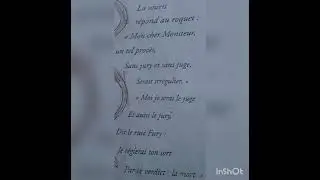 La souris
répond au roquet :
« Mon cher Monsieur,
un tel procès,
Sans jury et sans juge,
Serait irrégulier. »
« Moi je serai le juge
Et aussi le jury,
Dit le rusé Fury :
Je réglerai ton sort
Par ce verdict : la mort. »
InShOt